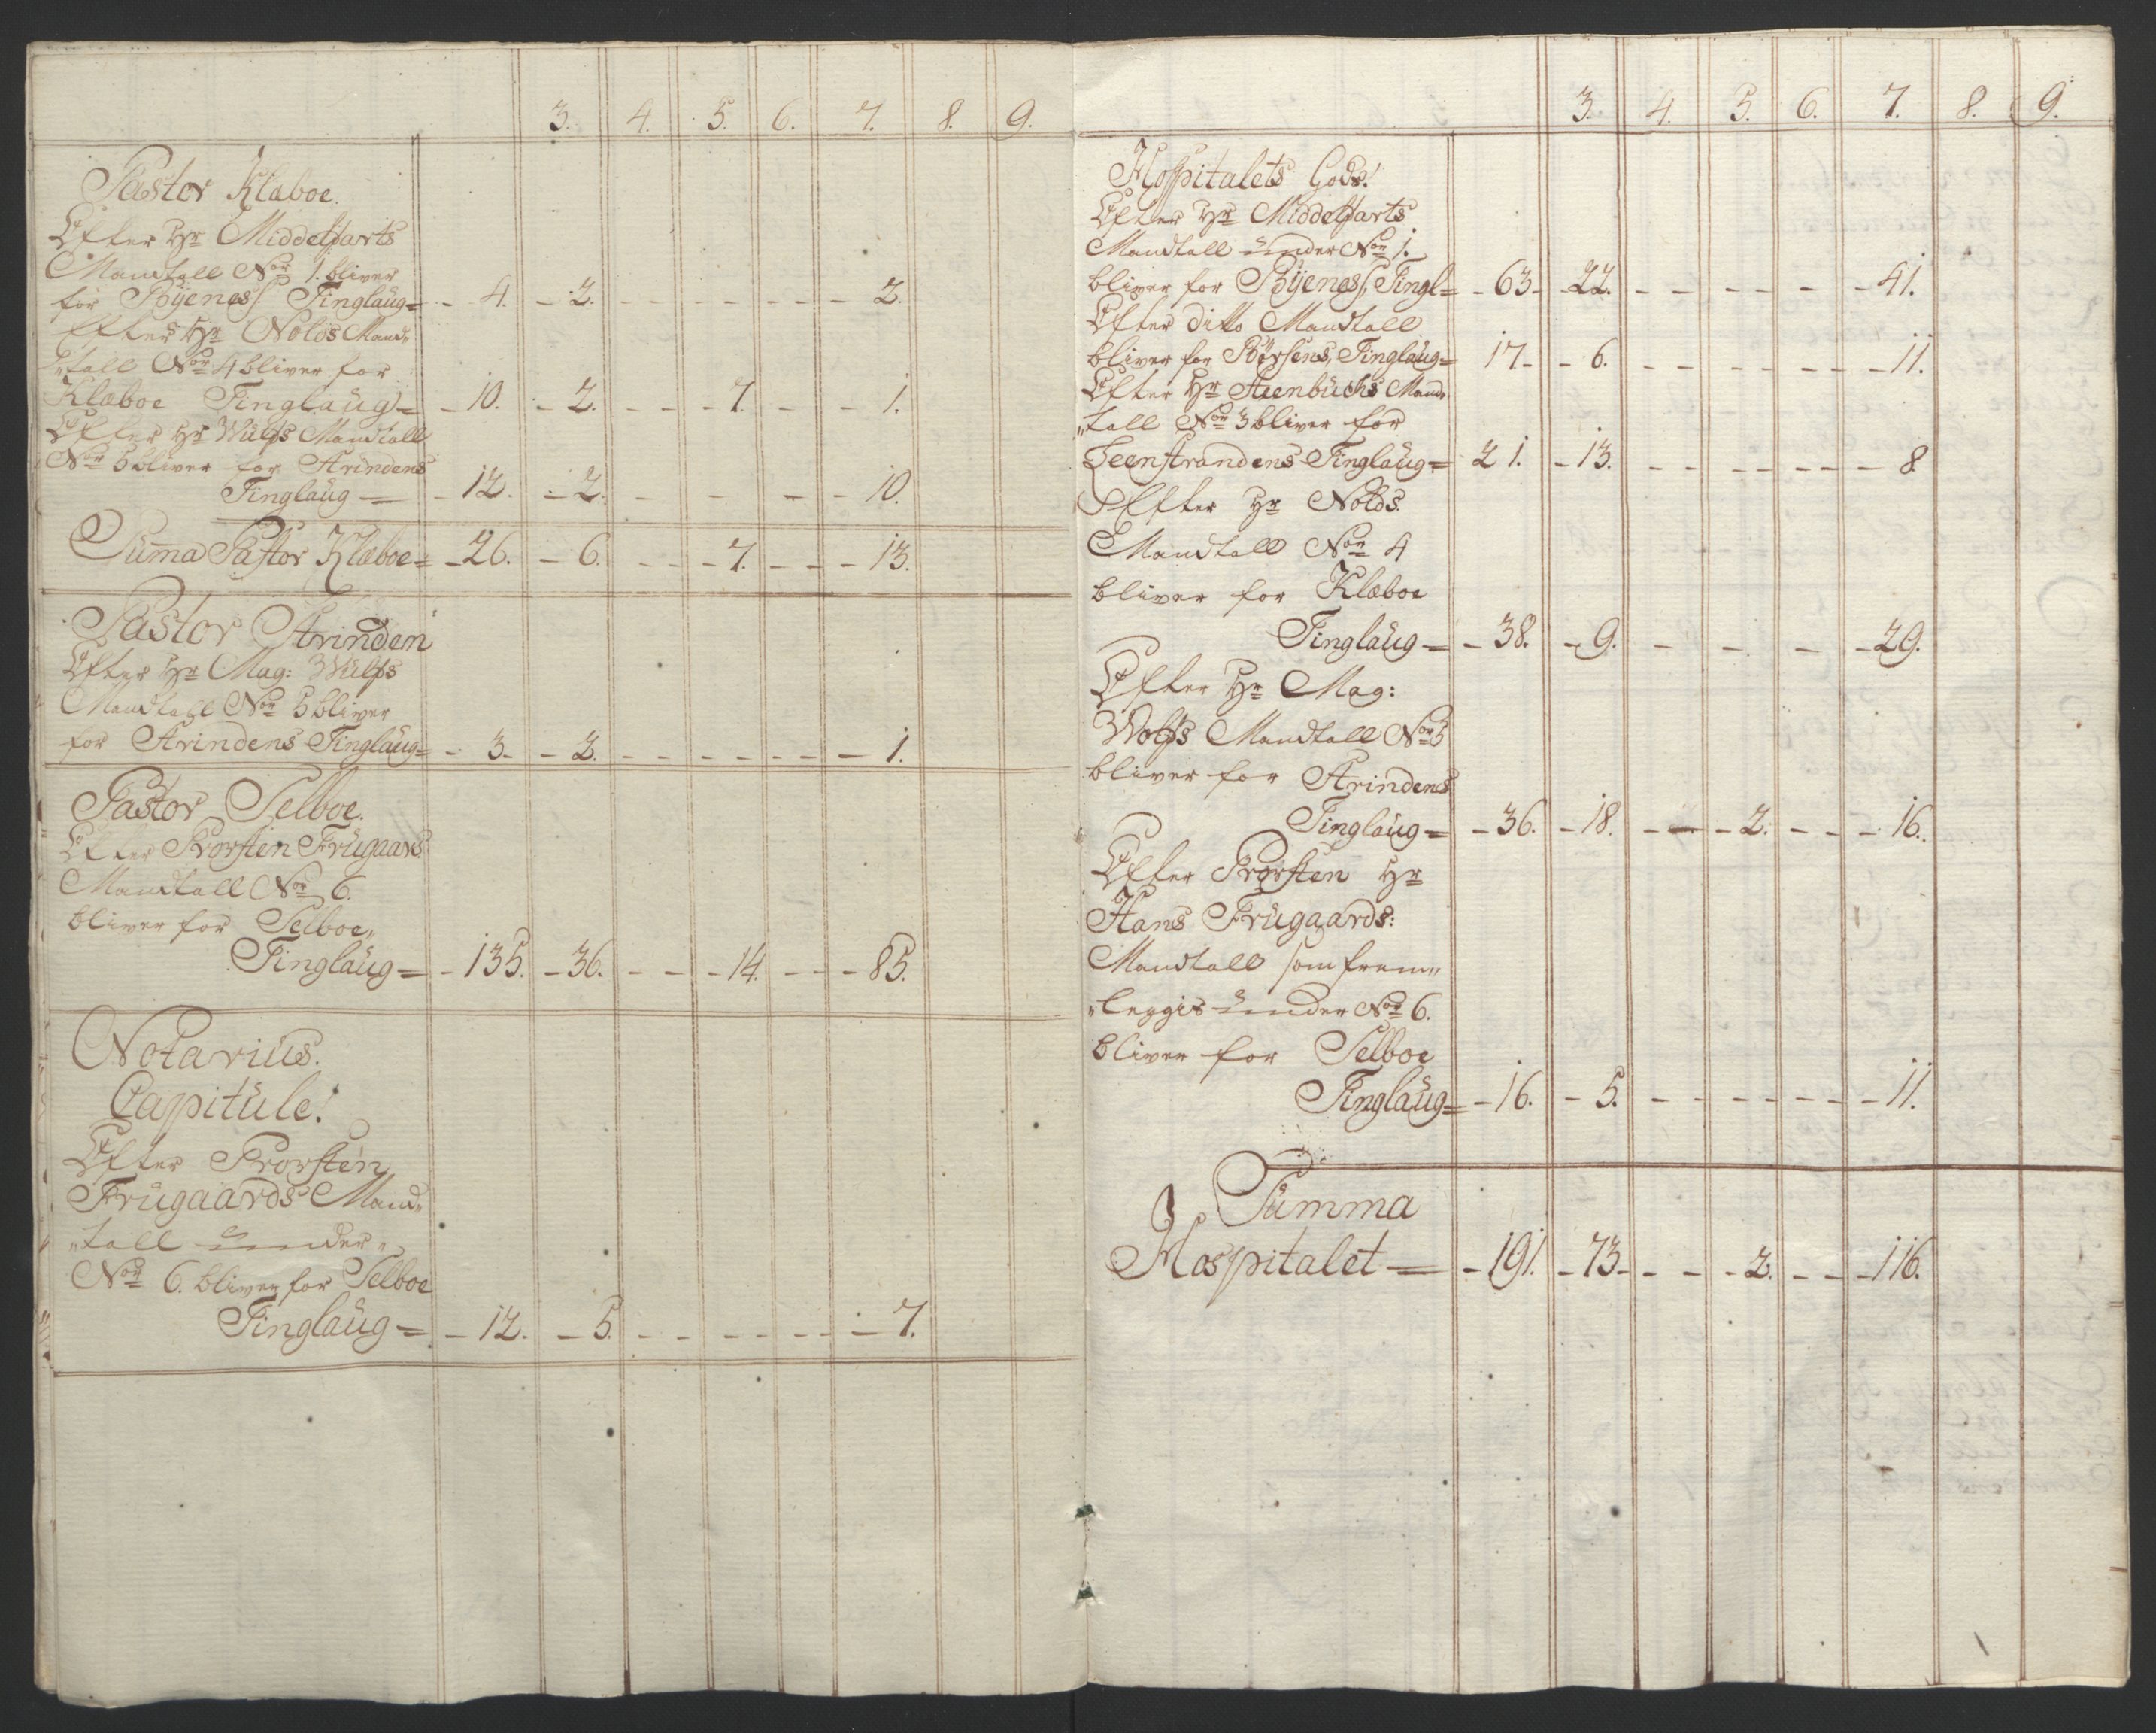 3. 4. 5. 6. 7. 8. 9.
Pastor Klæboe.
Efter Hr Middelfarts
Mandtall Nor 1. bliver
for Býenes, Tinglaŭg = - 4. - 2. - - - - - - 2.
Efter Hr Nolds Mand-
„tall Nor 4 bliver for
Klæboe Tinglaŭg = - 10. - 2. - - - 7. - - 1.
Efter Hr Wŭlfs Mandtall
Nor 5 bliver for Strindens
Tinglaŭg - - 12. - 2. - - - - 10.
Sŭma Pastor Klæboe = - 26. - 6. - - - 7. - - - 13.
Pastor Strinden
Efter Hr Mag: Wŭlfs
Mandtall Nor 5 bliver
for Strindens Tinglaŭg = - 3 - - 2. - - - - - - - 1.
Pastor Selboe.
Efter Prorsten Frŭgaars
Mandtall Nor 6.
bliver for Selboe„
Tinglaŭg = - 135. - 36. - - - 14. - - - 85.
Notariŭs.
Capitŭle.
Efter Prorsten
Frŭgaards Mand-
„tall ŭnder„
Nor 6. bliver for Selboe
Tinglaŭg = - 12. - 5. - - - - - - - 7.
3. 4. 5. 6. 7. 8. 9.
Hospitalets Gods.
Efter Hr Middelfarts
Mandtall ŭnder Nor 1.
bliver for Býenes, Tingl = - 63 - - 22. - - - - - - - 41.
Efter ditto Mandtall
bliver for Børsens, Tinglaŭg = 17 - - 6. - - - - - - - 11.
Efter Hr Steenbŭchs Mand-
„tall Nor 3 bliver for
Leenstrandens Tinglaŭg = 21. - 13. - - - - - - - 8
Efter Hr Nolds.
Mandtall Nor 4
bliver for Klæboe
Tinglaŭg = - 38. - 9. - - - - 29.
Efter Hr Mag:
Wolfs Mandtall Nor 5
bliver for Strindens
Tinglaŭg = - 36. - 18. - - - 2. - - - 16.
Efter Prorsten Hr
Hans Frŭgaards:
Mandtall som frem„
„leggis ŭnder Nor 6.
bliver for Selboe
Tinglaŭg = - 16. - 5. - - - - - - - 11.
Sŭmma
Hospitalet = - 191. - 73 - - - - 2. - - - 116.